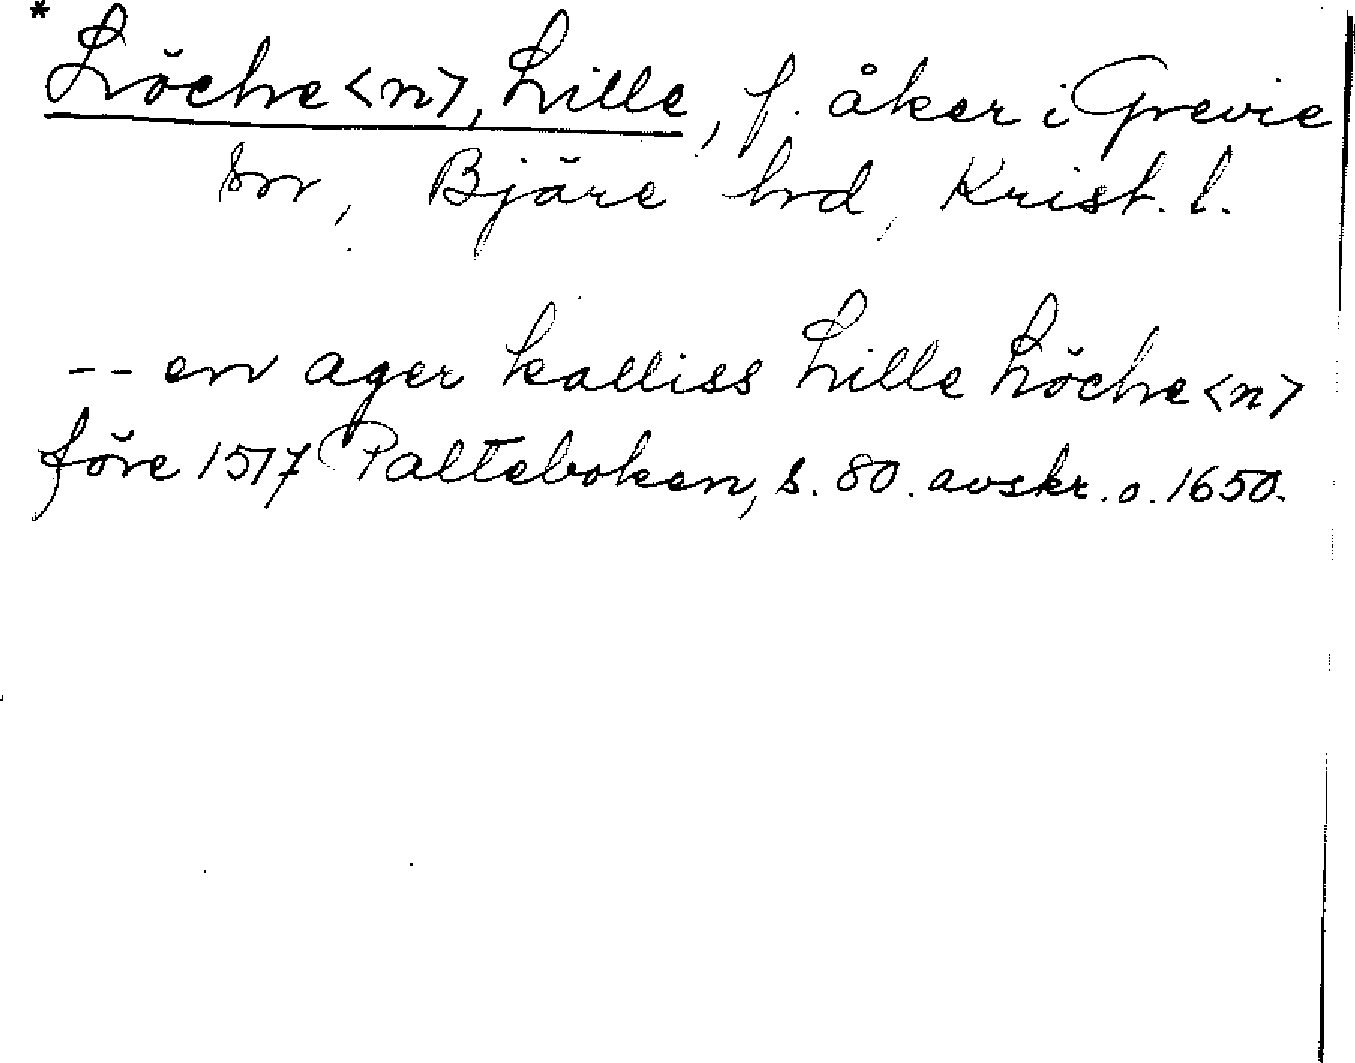 * Löche<n>, Lille, f. åker i Grevie
sn, Bjäre hd, Krist. l.
-- en ager kalliss Lille Löche<n>
före 1517 Palteboken, s. 80. avskr. o. 1650.